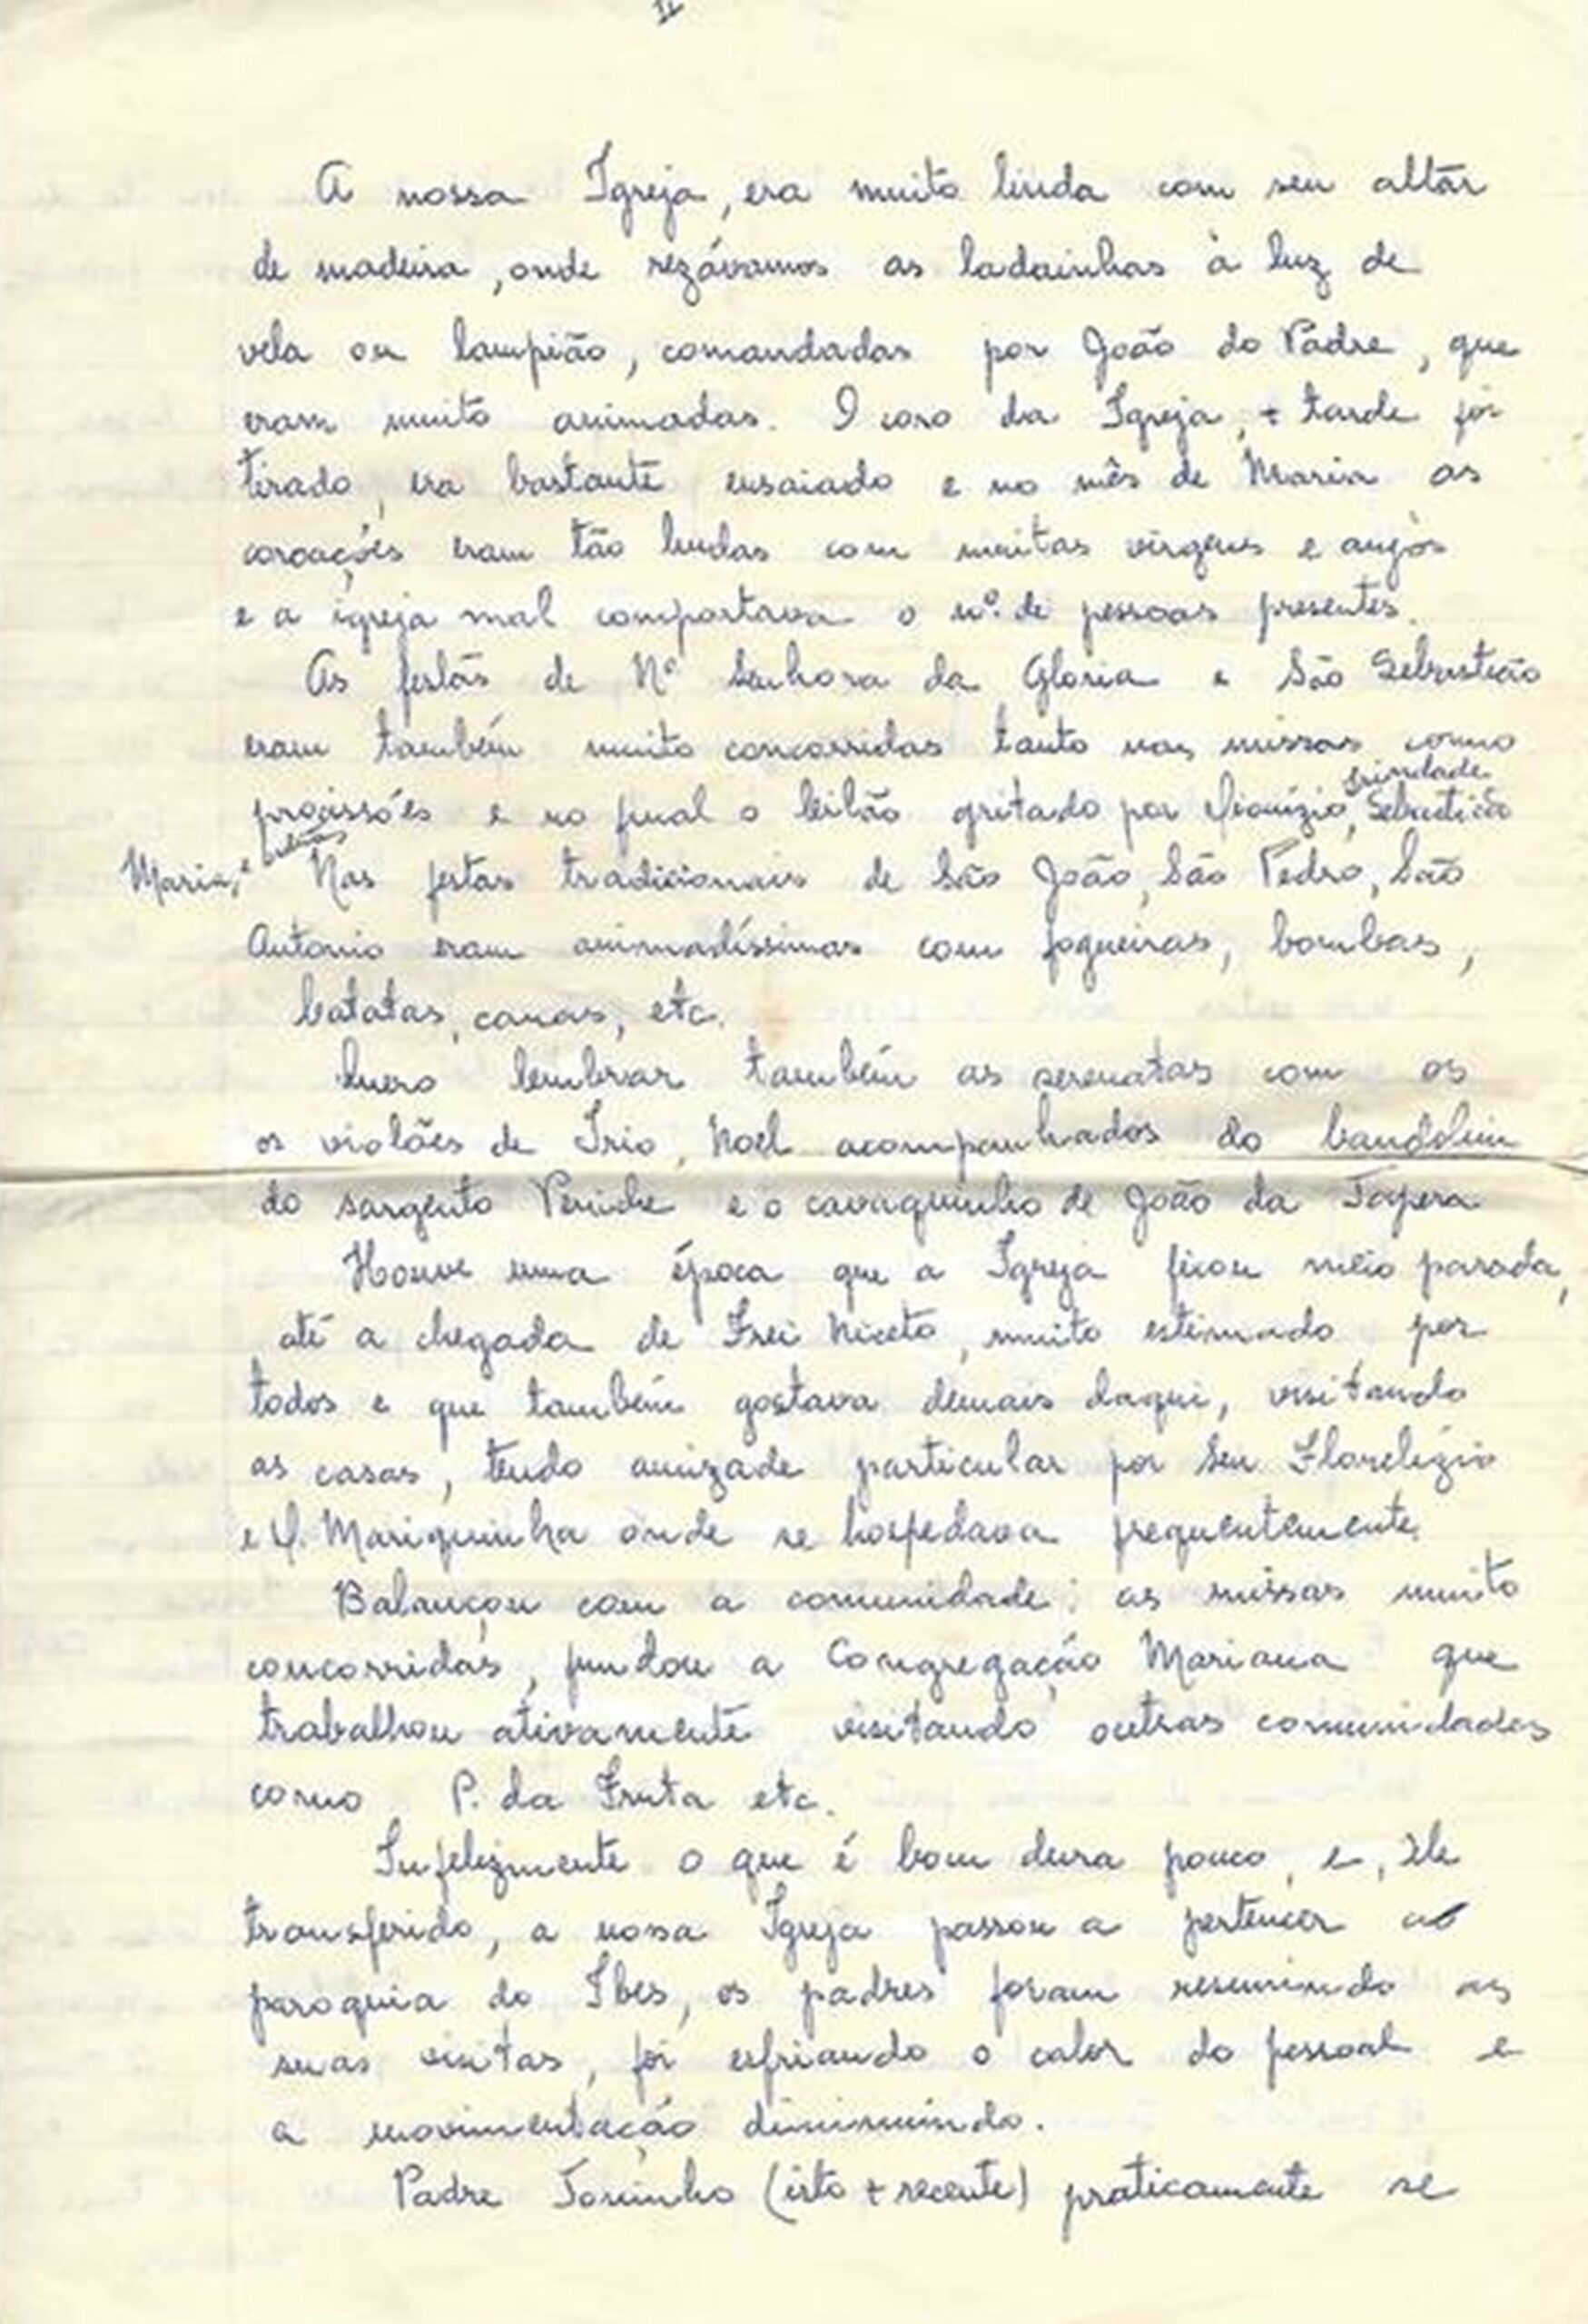 II
A nossa Igreja, era muito linda com seu altar
de madeira, onde rezávamos as ladainhas à luz de
vela ou lampião, comandadas por João do Padre, que
eram muito animadas. O coro da Igreja, + tarde foi
tirado, era bastante ensaiado e no mês de Maria as
coroações eram tão lindas com muitas virgens e anjos
e a igreja mal comportava o nº. de pessoas presentes.
As festas de Nª Senhora da Gloria e São Sebastião
eram também muito concorridas tanto nas missas como
trindade
procissões e no final o leilão gritado por Dionízio, Sebastião
Maria, e
Nas festas tradicionais de São João, São Pedro, São
Antonio eram animadíssimas com fogueiras, bombas,
batatas, canas, etc.
Quero lembrar também as serenatas com os
os violões de Irio, Noel acompanhados do bandolim
do sargento e o cavaquinho de João da Tapera
Houve uma época que a Igreja ficou meio parada,
até a chegada de Frei Niceto, muito estimado por
todos e que também gostava demais daqui, visitando
as casas, tendo amizade particular por Seu Florelízio
e D. Mariquinha onde se hospedava frequentemente.
Balançou com a comunidade: as missas muito
concorridas, fundou a Congregação Mariana que
trabalhou ativamente visitando outras comunidades
como P. da Fruta etc.
Infelizmente o que é bom dura pouco, e, Ele
transferido, a nossa Igreja passou a pertencer a
paroquia do Ibes, os padres foram resumindo as
suas visitas, foi esfriando o calor do pessoal e
a movimentação diminuindo.
Padre Toninho (isto + recente) praticamente se